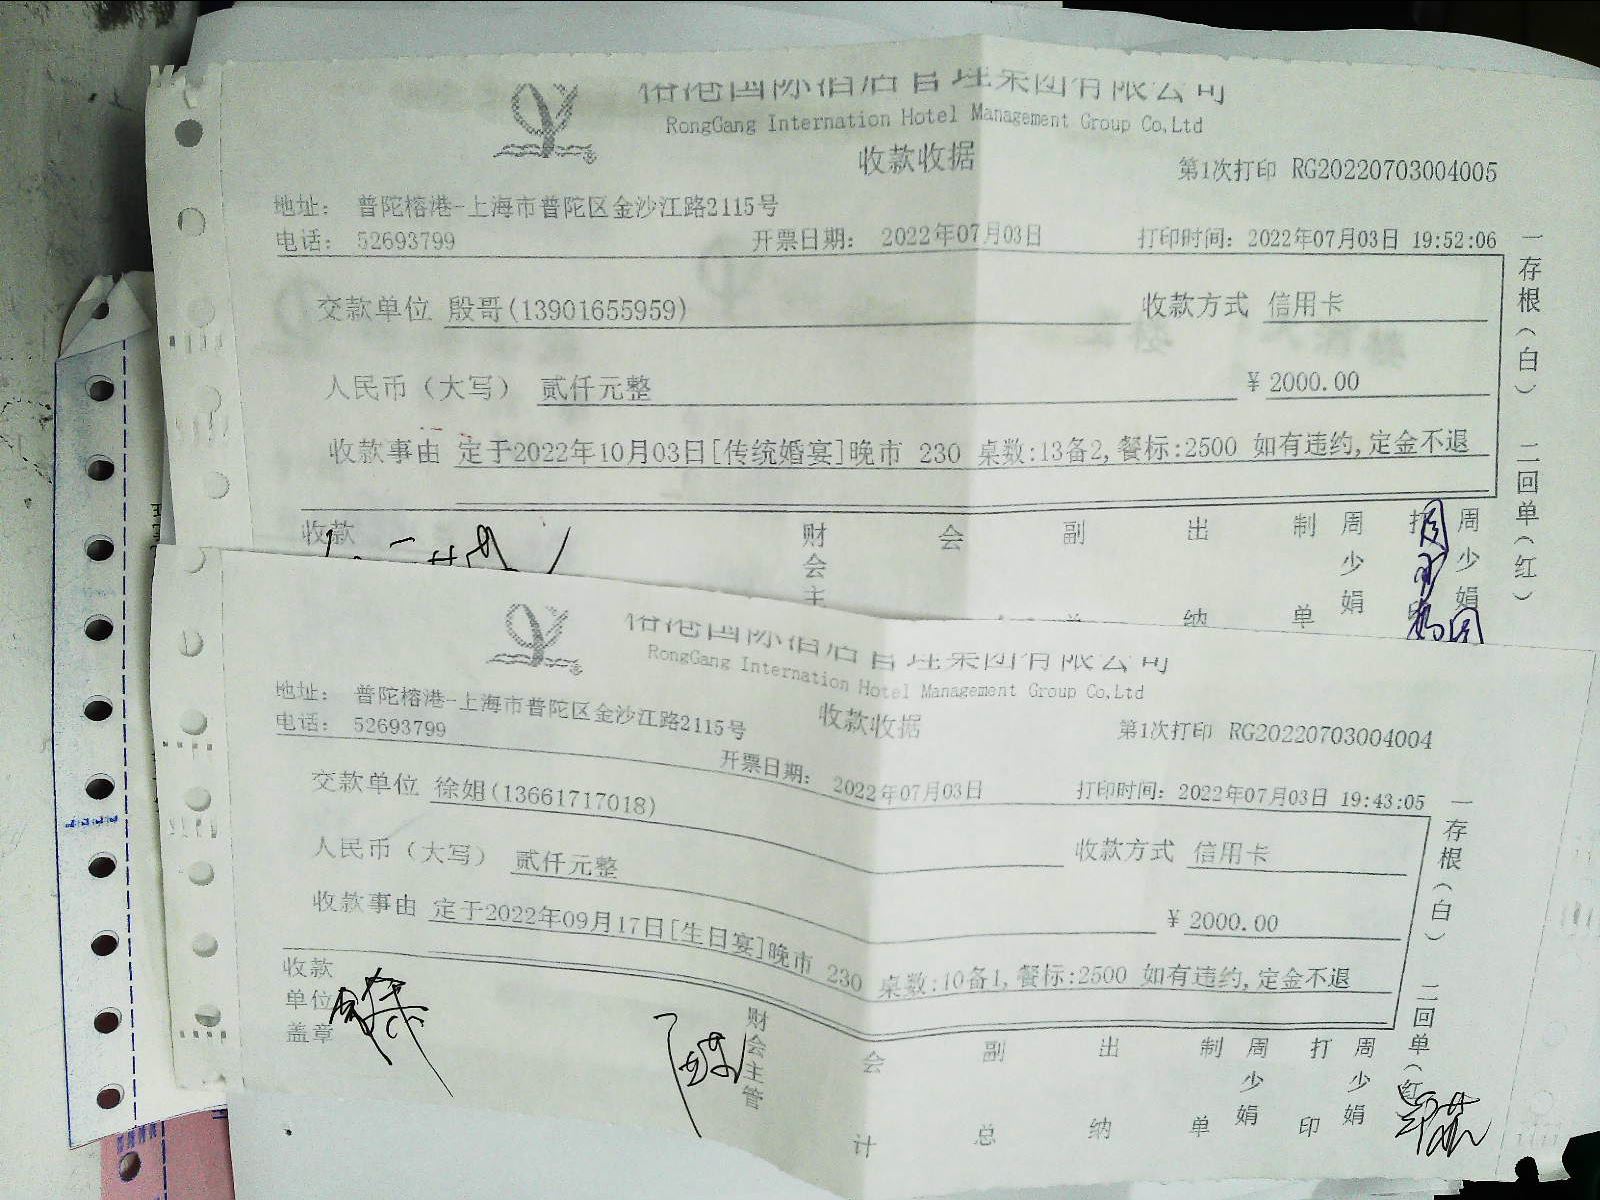 榕港国际酒店管理集团有限公司
RongGang Internation Hotel Management Group Co,Ltd
收款收据
第1次打印 RG20220703004005
地址： 普陀榕港-上海市普陀区金沙江路2115号
电话： 52693799
开票日期： 2022年07月03日
打印时间：2022年07月03日 19:52:06
交款单位 殷哥(13901655959)
收款方式 信用卡
人民币（大写） 贰仟元整
¥ 2000.00
收款事由 定于2022年10月03日[传统婚宴]晚市 230 桌数:13备2,餐标:2500 如有违约,定金不退
一存根（白） 二回单（红）
收款
财会主
会
副
出纳
制单
周少娟
打
周少娟
榕港国际酒店管理集团有限公司
RongGang Internation Hotel Management Group Co,Ltd
收款收据
第1次打印 RG20220703004004
地址： 普陀榕港-上海市普陀区金沙江路2115号
电话： 52693799
开票日期： 2022年07月03日
打印时间：2022年07月03日 19:43:05
交款单位 徐姐(13661717018)
收款方式 信用卡
人民币（大写） 贰仟元整
¥ 2000.00
收款事由 定于2022年09月17日[生日宴]晚市 230 桌数:10备1,餐标:2500 如有违约,定金不退
一存根（白） 二回单（红
收款单位盖章
财会主管
会计
副总
出纳
制单
周少娟
打印
周少娟